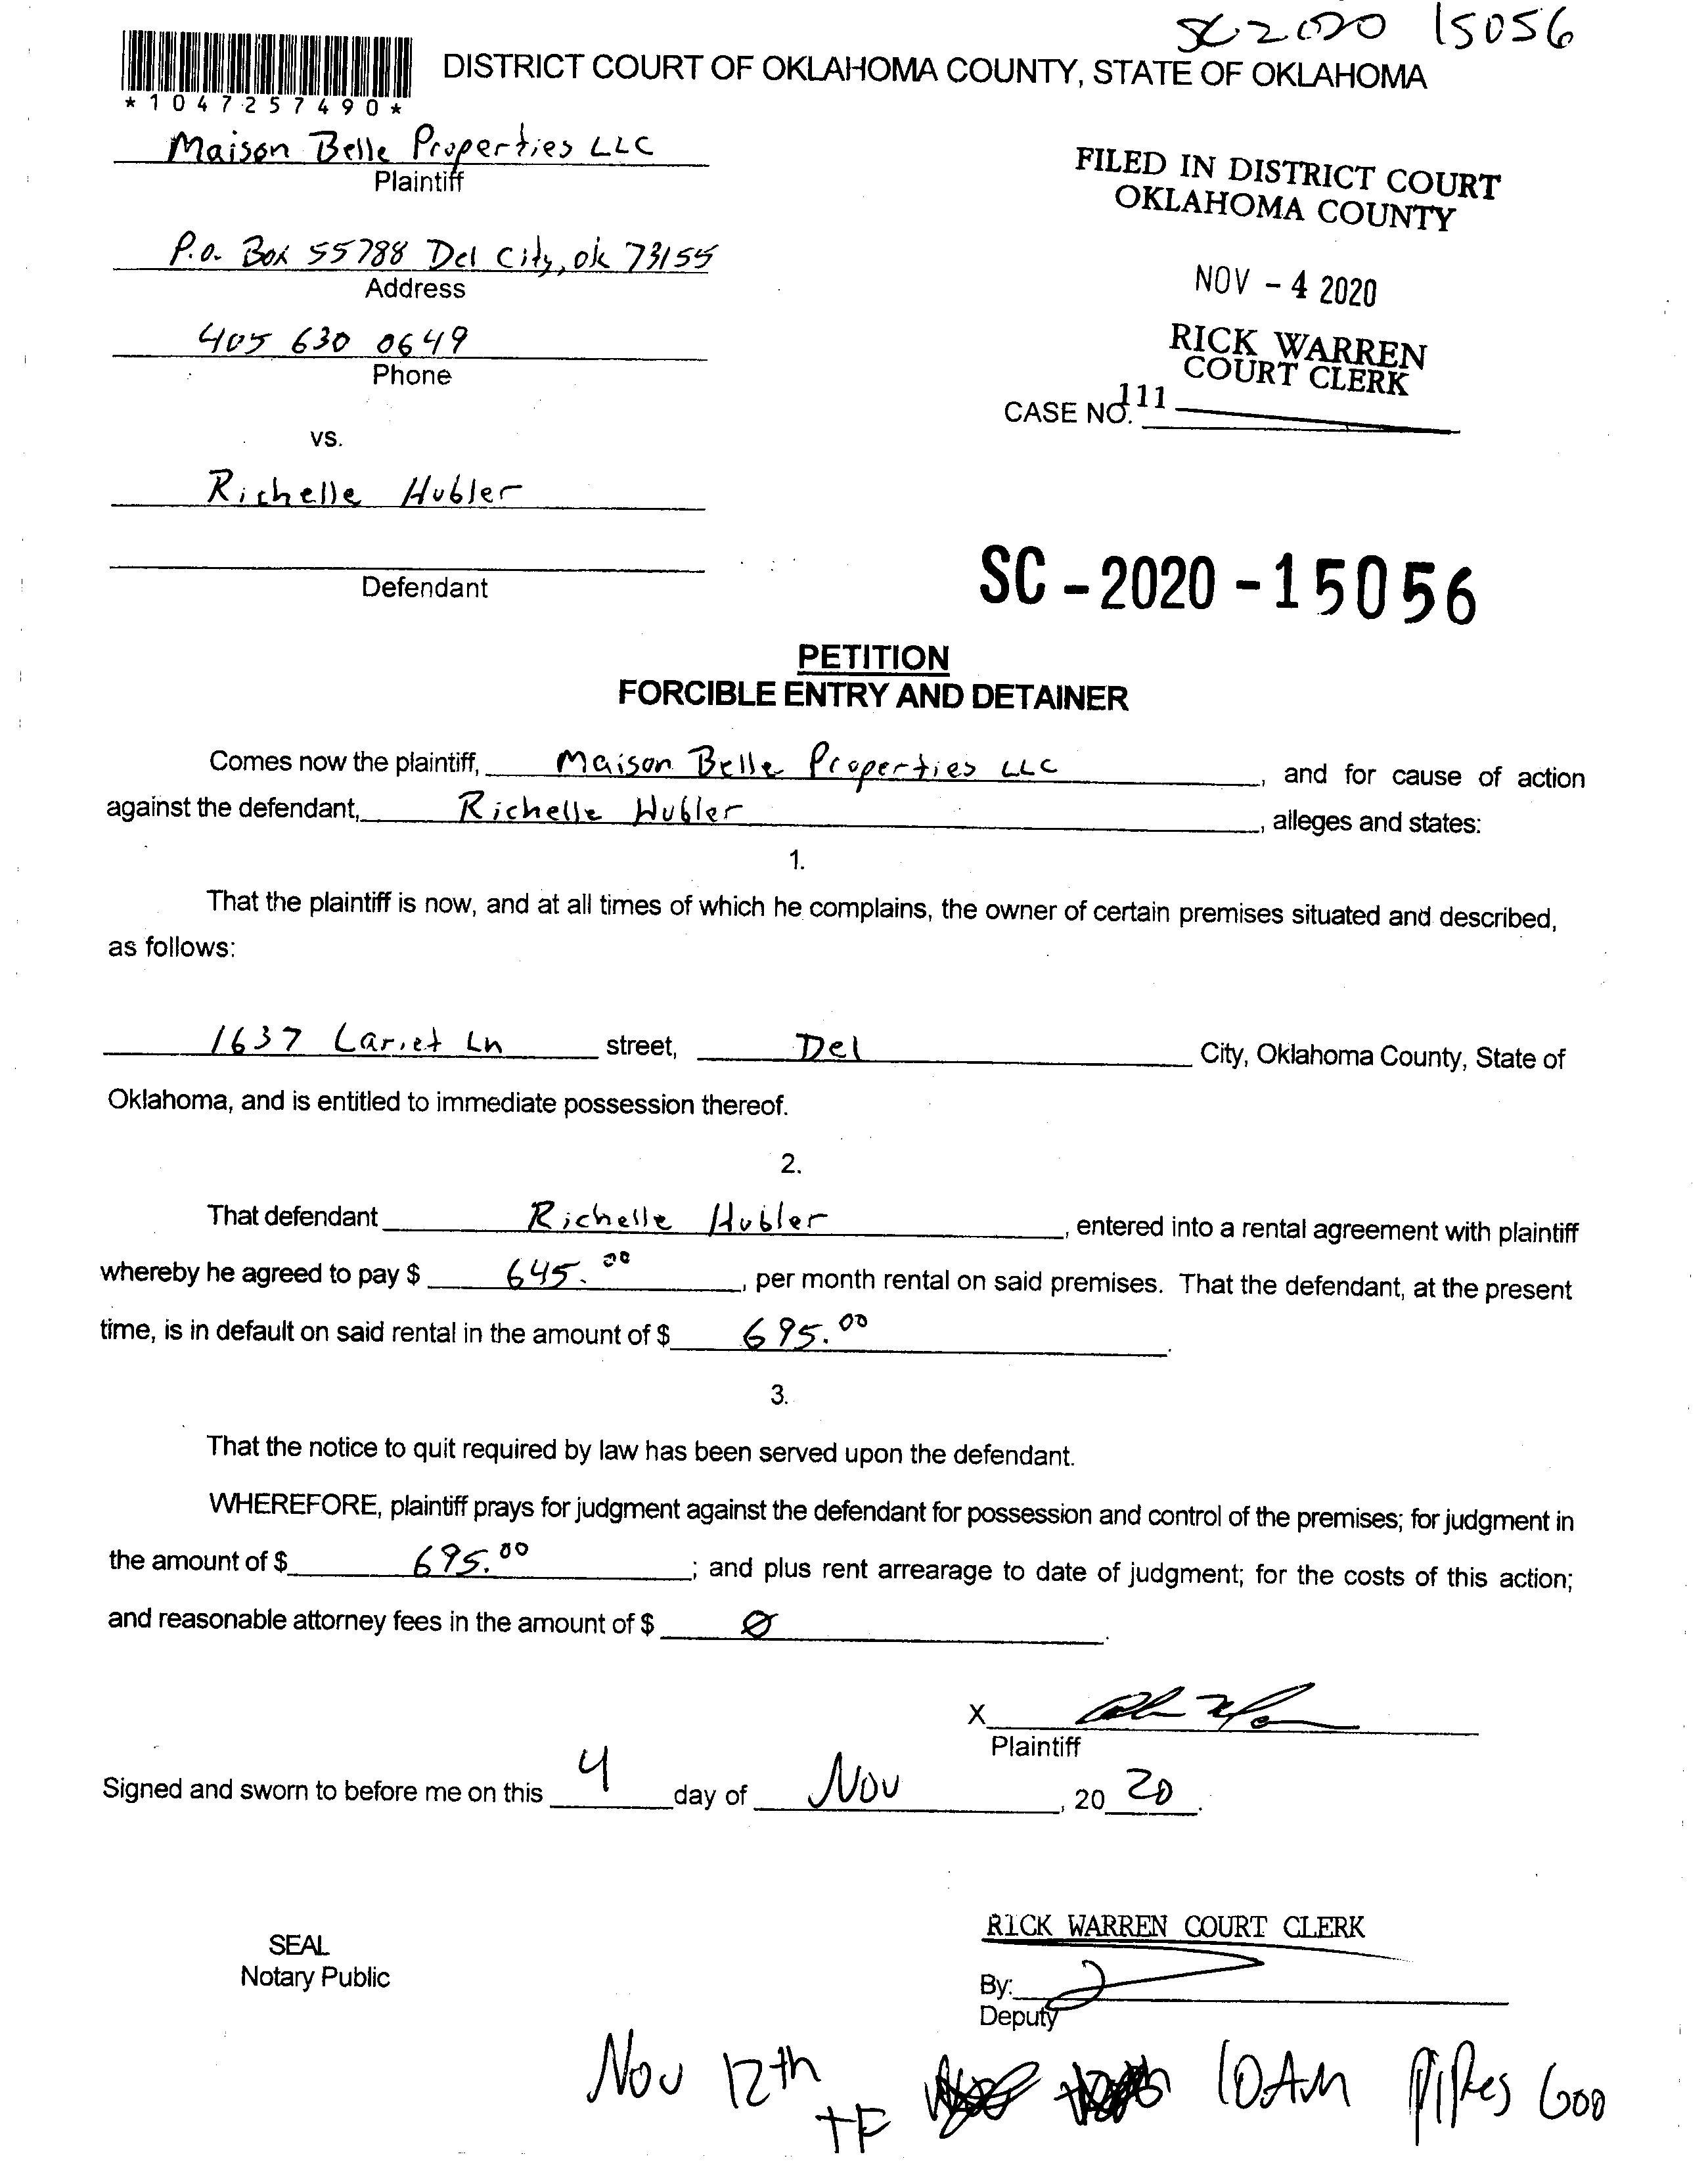 SC 2020 15056
DISTRICT COURT OF OKLAHOMA COUNTY, STATE OF OKLAHOMA
*1047257490*
Maison Belle Properties LLC
Plaintiff
FILED IN DISTRICT COURT
OKLAHOMA COUNTY
P.O. Box 55788 Del City, ok 73155
Address
NOV - 4 2020
405 630 0649
Phone
RICK WARREN
COURT CLERK
CASE NO. 111
vs.
Richelle Hubler
Defendant
SC - 2020 - 15056
PETITION
FORCIBLE ENTRY AND DETAINER
Comes now the plaintiff, Maison Belle Properties LLC, and for cause of action
against the defendant, Richelle Hubler, alleges and states:
1.
That the plaintiff is now, and at all times of which he complains, the owner of certain premises situated and described,
as follows:
1637 Lariet Ln street, Del City, Oklahoma County, State of
Oklahoma, and is entitled to immediate possession thereof.
2.
That defendant Richelle Hubler, entered into a rental agreement with plaintiff
whereby he agreed to pay $ 645.00, per month rental on said premises. That the defendant, at the present
time, is in default on said rental in the amount of $ 695.00.
3.
That the notice to quit required by law has been served upon the defendant.
WHEREFORE, plaintiff prays for judgment against the defendant for possession and control of the premises; for judgment in
the amount of $ 695.00; and plus rent arrearage to date of judgment; for the costs of this action;
and reasonable attorney fees in the amount of $ Ø.
X
Plaintiff
Signed and sworn to before me on this 4 day of Nov, 20 20.
RICK WARREN COURT CLERK
SEAL
Notary Public
By:
Deputy
Nov 12th 10AM Pipes 600
TF